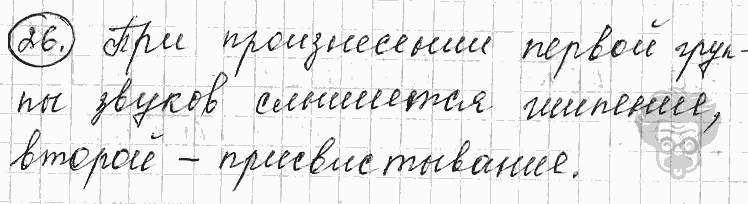 26. При произнесении первой груп-
пы звуков слышится шипение,
второй – присвистывание.